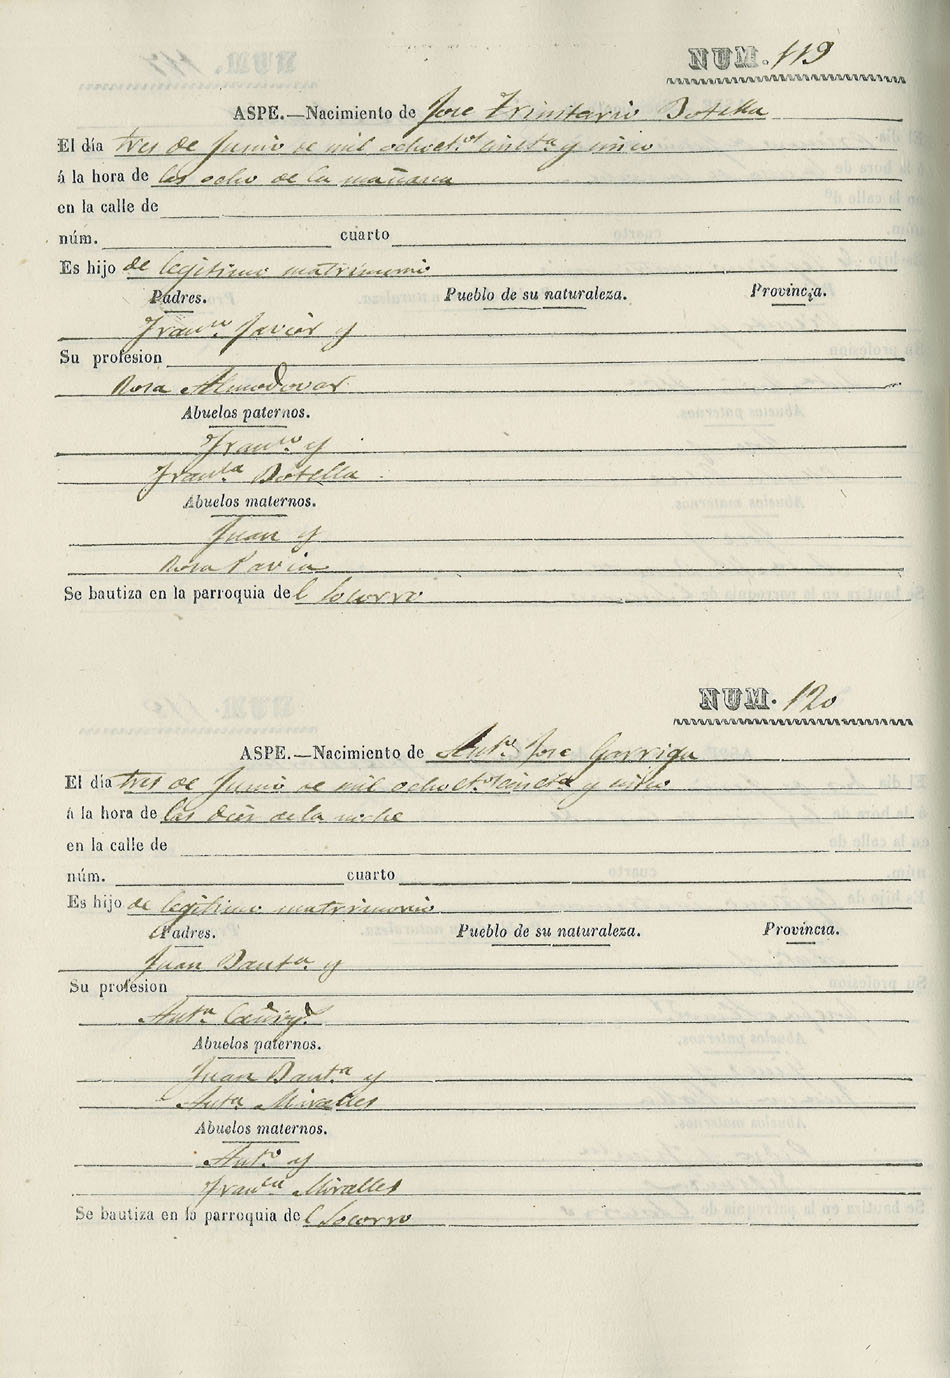 NUM. 119
ASPE.—Nacimiento de Jose Trinitario Botella
El día tres de Junio de mil ochoct.os sinct.a y sinco
á la hora de las ocho de la mañana
en la calle de
núm. cuarto
Es hijo de legitimo matrimonio
Padres. Pueblo de su naturaleza. Provincia.
Fran.co Javier y
Su profesion
Rosa Almodovar
Abuelos paternos.
Fran.co y
Fran.ca Botella
Abuelos maternos.
Juan y
Rosa Pavia
Se bautiza en la parroquia del Socorro
NUM. 120
ASPE.—Nacimiento de Ant.o Jose Garriga
El día tres de Junio de mil ochoct.s sinct.a y sinco
á la hora de las dies de la noche
en la calle de
núm. cuarto
Es hijo de legitimo matrimonio
Padres. Pueblo de su naturaleza. Provincia.
Juan Baut.a y
Su profesion
Ant.a
Abuelos paternos.
Juan Baut.a y
Ant.a Miralles
Abuelos maternos.
Ant.o y
Fran.ca Miralles
Se bautiza en la parroquia del Socorro